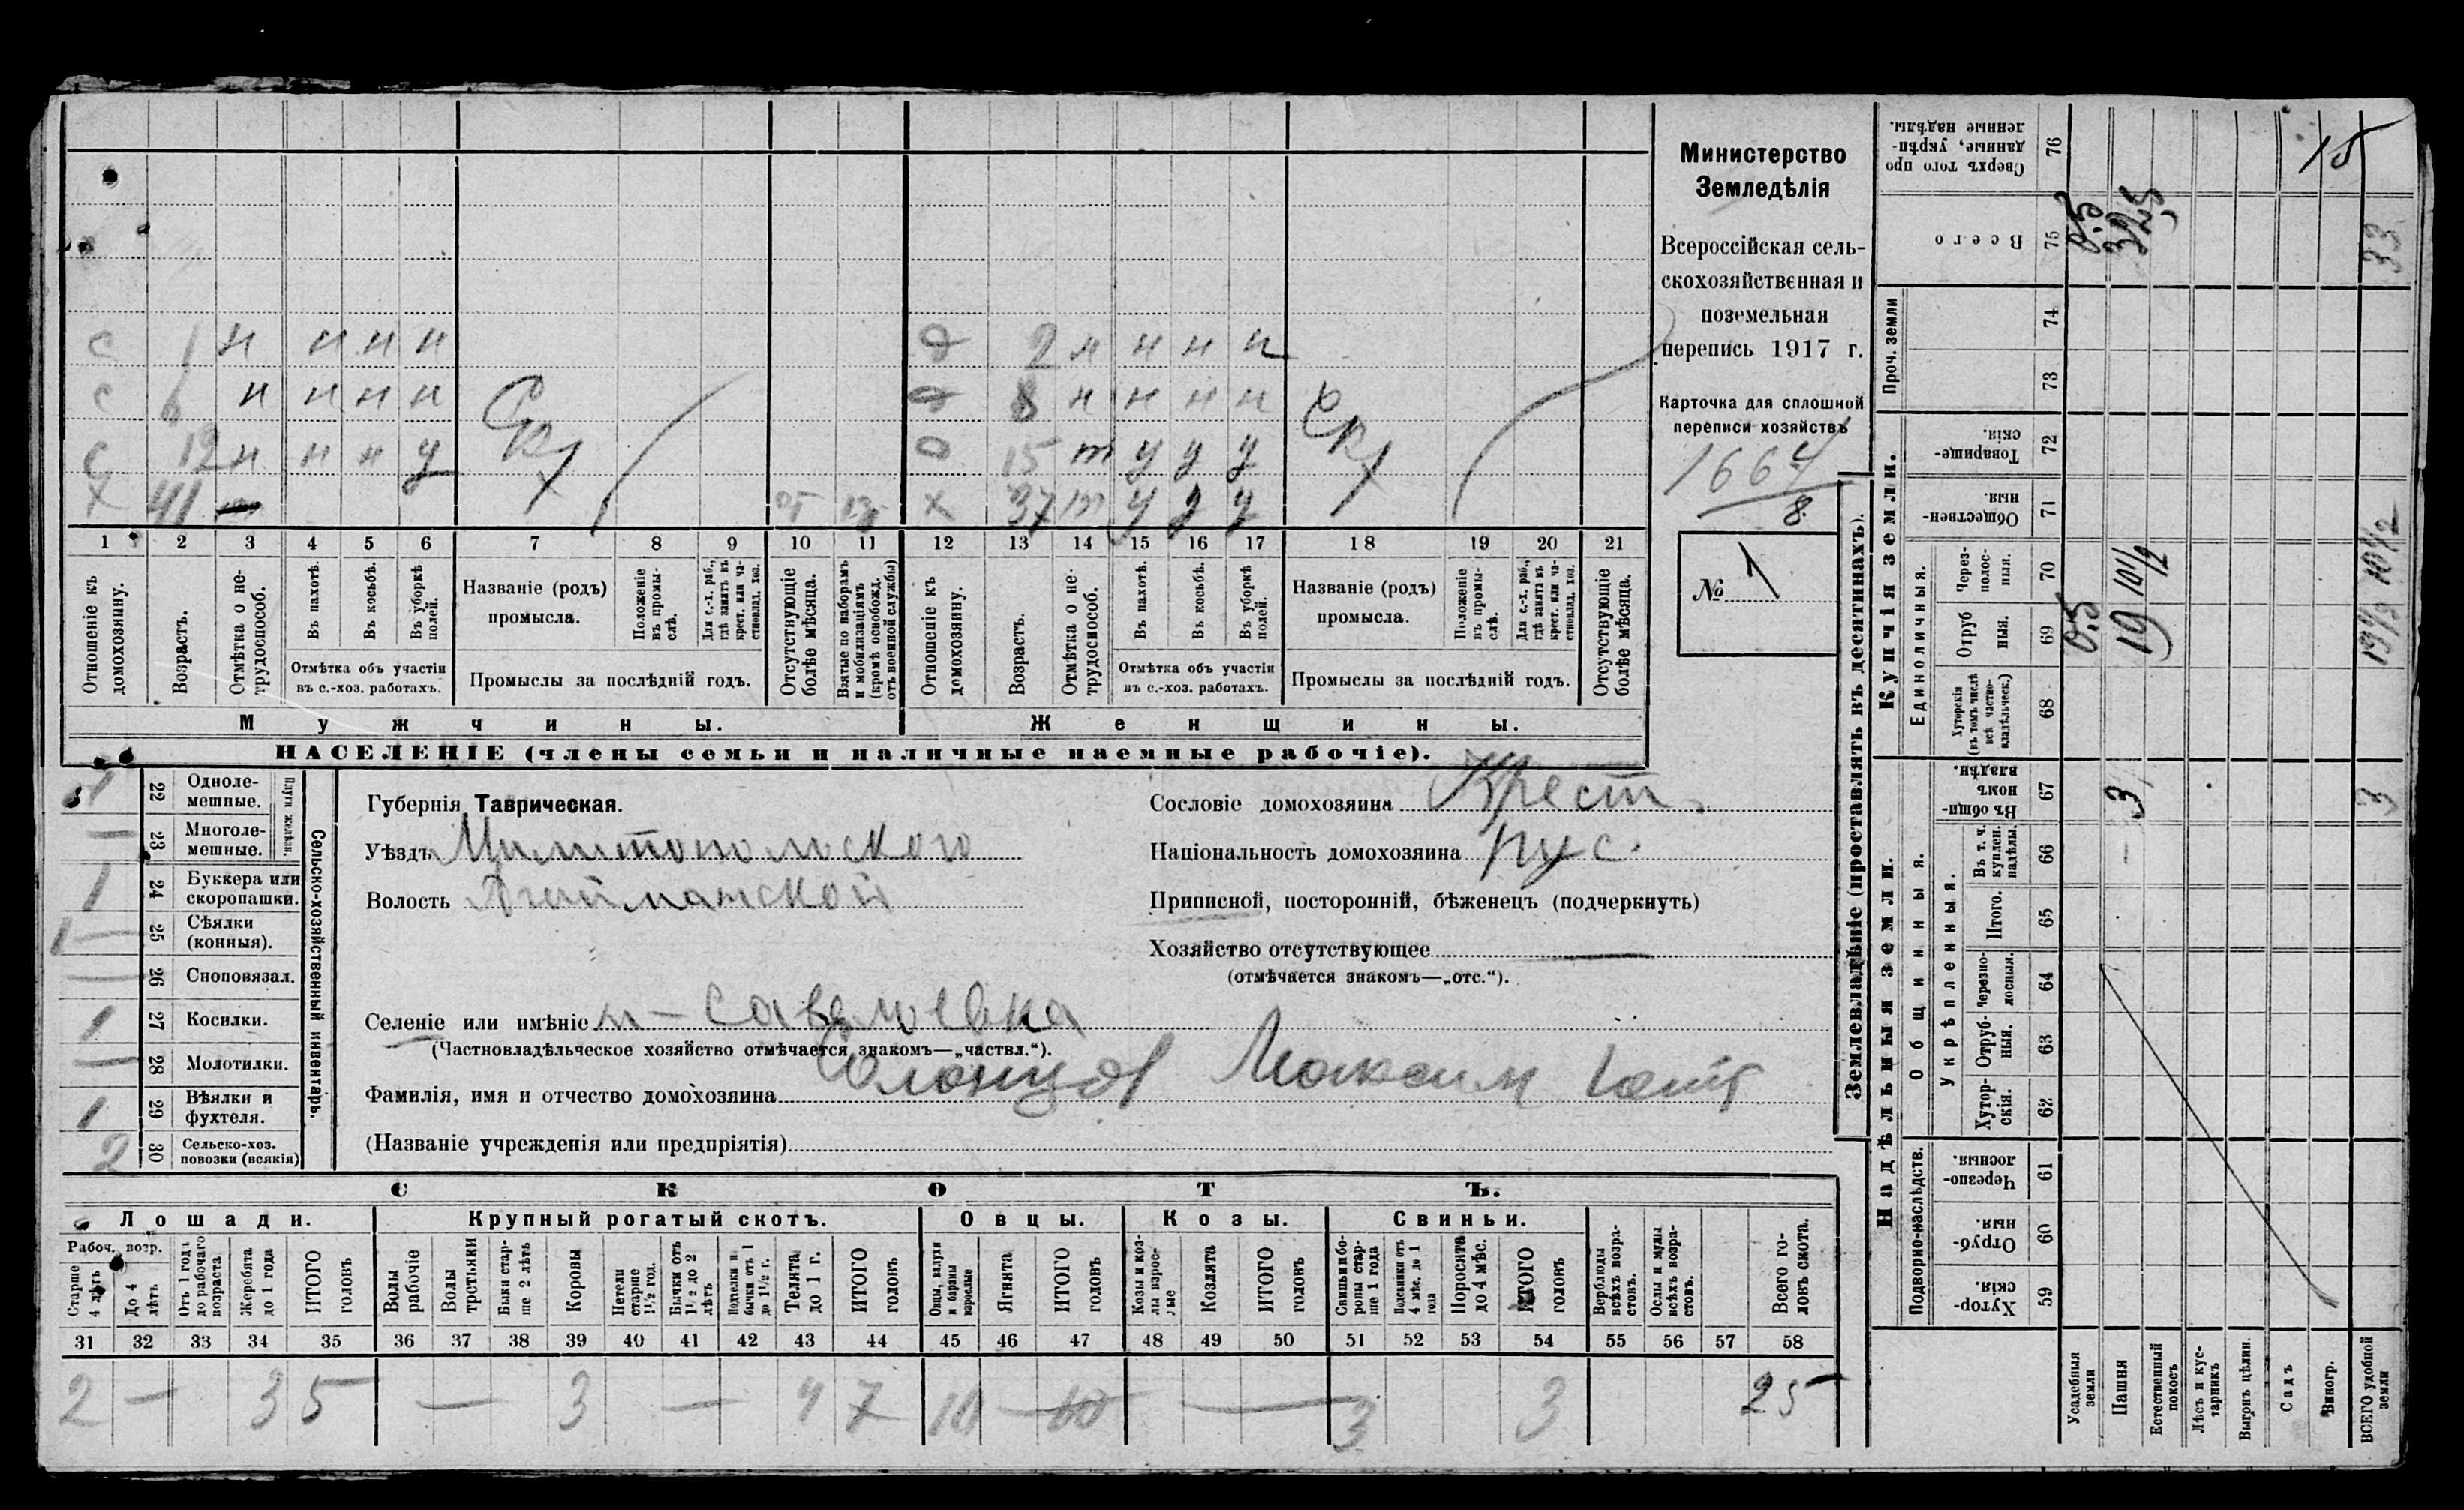 Министерство
Земледѣлія
Всероссійская сель-
скохозяйственная и
поземельная
перепись 1917 г.
Карточка для сплошной
переписи хозяйствъ
1664
8
№ 1
с 1 н н н н д 2 н н н н
с 6 н н н н д 8 н н н н
с 12 н н н у д 15 т у у у
х 41 х 37 т у у у
1 2 3 4 5 6 7 8 9 10 11 12 13 14 15 16 17 18 19 20 21
Отношеніе къ домохозяину.
Возрастъ.
Отмѣтка о не-трудоспособ.
Въ пахотѣ.
Въ косьбѣ.
Въ уборкѣ полей.
Отмѣтка объ участіи
въ с.-хоз. работахъ.
Названіе (родъ)
промысла.
Положеніе въ промы-слѣ.
Для с.-х. раб., гдѣ занятъ въ крест. или ча-стновлад. хоз.
Промыслы за послѣдній годъ.
Отсутствующіе болѣе мѣсяца.
Взятые по наборамъ и мобилизаціямъ (кромѣ освобожд. отъ военной службы)
Отношеніе къ домохозяину.
Возрастъ.
Отмѣтка о не-трудоспособ.
Въ пахотѣ.
Въ косьбѣ.
Въ уборкѣ полей.
Отмѣтка объ участіи
въ с.-хоз. работахъ.
Названіе (родъ)
промысла.
Положеніе въ промы-слѣ.
Для с.-х. раб., гдѣ занятъ въ крест. или ча-стновлад. хоз.
Промыслы за послѣдній годъ.
Отсутствующіе болѣе мѣсяца.
Мужчины. Женщины.
НАСЕЛЕНІЕ (члены семьи и наличные наемные рабочіе).
Сельско-хозяйственный инвентарь.
Плуги желѣзн.
1 22 Одноле-мешные.
— 23 Многоле-мешные.
1 24 Буккера или скоропашки.
1 — 25 Сѣялки (конныя).
— 26 Сноповязал.
1 27 Косилки.
— 28 Молотилки.
1 29 Вѣялки и фухтеля.
2 30 Сельско-хоз. повозки (всякія)
Губернія Таврическая.
Уѣздъ Милитопольского
Волость Агайманской
Селеніе или имѣніе
(Частновладѣльческое хозяйство отмѣчается знакомъ—„частвл.“).
Фамилія, имя и отчество домохозяина Максим
(Названіе учрежденія или предпріятія)
Сословіе домохозяина Крест.
Національность домохозяина рус.
Приписной, посторонній, бѣженецъ (подчеркнуть)
Хозяйство отсутствующее —
(отмѣчается знакомъ—„отс.“).
СКОТЪ.
Лошади. Крупный рогатый скотъ. Овцы. Козы. Свиньи.
Рабоч. возр.
Старше 4 лѣтъ
До 4 лѣтъ
Отъ 1 года до рабочаго возраста
Жеребята до 1 года
ИТОГО головъ
Волы рабочіе
Волы третьяки
Быки стар-ше 2 лѣтъ
Коровы
Нетели старше 1½ год.
Бычки отъ 1½ до 2 лѣтъ
Подтелки и бычки отъ 1 до 1½ г.
Телята до 1 г.
ИТОГО головъ
Овцы, валухи и бараны взрослые
Ягнята
ИТОГО головъ
Козы и коз-лы взрос-лые
Козлята
ИТОГО головъ
Свиньи и бо-ровы стар-ше 1 года
Подсвинки отъ 4 мѣс. до 1 года
Поросята до 4 мѣс.
ИТОГО головъ
Верблюды всѣхъ возра-стовъ.
Ослы и мулы всѣхъ возра-стовъ.
Всего го-ловъ скота.
31 32 33 34 35 36 37 38 39 40 41 42 43 44 45 46 47 48 49 50 51 52 53 54 55 56 57 58
2 — 3 5 — 3 — 4 7 10 — 10 — 3 3 25
Землевладѣніе (проставлять въ десятинахъ).
Сверхъ того про-данные, укрѣп-ленные надѣлы. 76 15
Всего 75 0.5 32,5 33
Проч. земли 74 73
Купчія земли.
Товарище-скія. 72
Обществен-ныя. 71
Единоличныя.
Через-полос-ныя. 70 10½ 10½
Отруб ныя. 69 0.5 19 19½
Хуторскія (въ томъ числѣ всѣ частно-владѣльческ.) 68
Надѣльныя земли.
Въ общи-номъ владѣн. 67 3 3
Общинныя.
Укрѣпленныя.
Въ т. ч. куплен. надѣлы. 66 —
Итого. 65
Черезпо-лосныя. 64
Отруб-ныя. 63
Хутор-скія. 62
Подворно-наслѣдств.
Черезпо-лосныя. 61
Отруб-ныя. 60
Хутор-скія. 59
Усадебныя земли
Пашня
Естественный покосъ
Лѣсъ и кус-тарникъ
Выгонъ цѣлин.
Садъ
Виногр.
ВСЕГО удобной земли